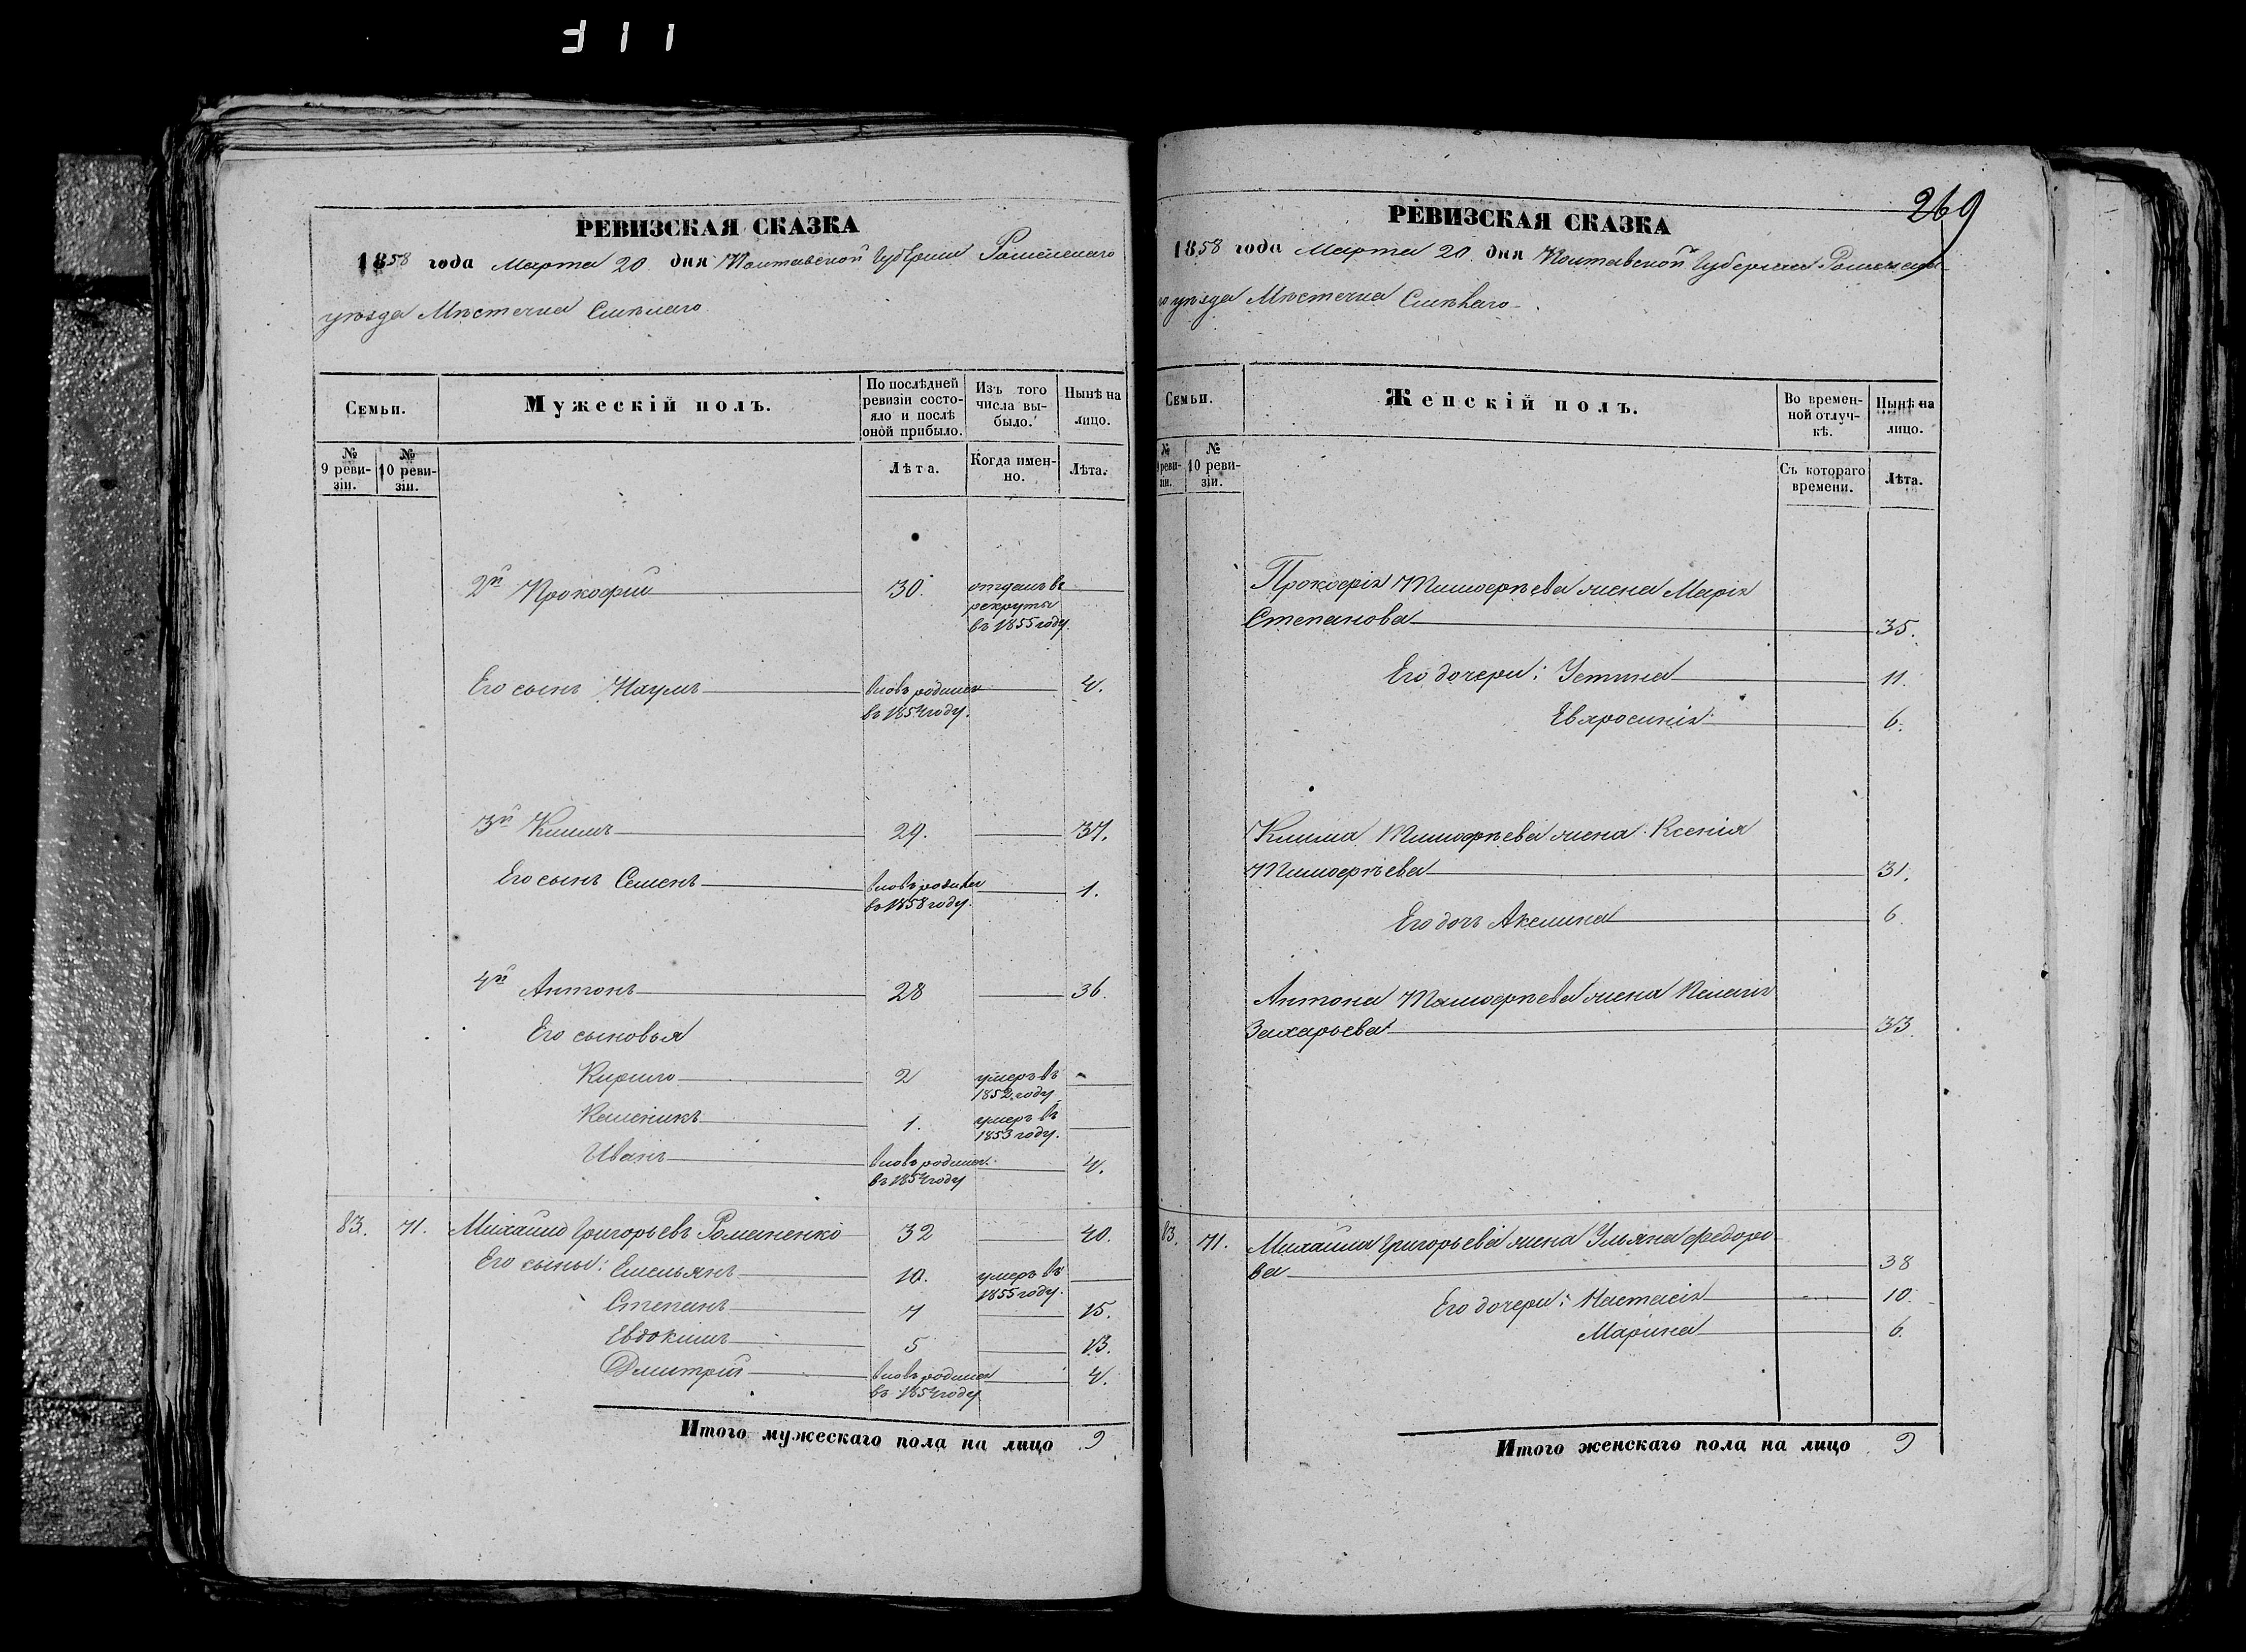 269
РЕВИЗСКАЯ СКАЗКА
1858 года Марта 20 дня Полтавской Губернiи Роменскаго
уѣзда Мѣстечка Смѣлаго
Семьи.
Мужескій полъ.
По послѣдней ревизіи состояло и послѣ оной прибыло.
Изъ того числа выбыло.
Нынѣ на лицо.
№ 9 ревизіи.
№ 10 ревизіи.
Лѣта.
Когда именно.
Лѣта.
2й Прокофій 30. отданъ въ
рекруты
въ 1855 году.
Его сынъ Наумъ вновь родился 4.
въ 1854 году.
3й Климъ 29. 37.
Его сынъ Семенъ вновь родился 1.
въ 1858 году.
4й Антонъ 28 36.
Его сыновья
Кирило 2 умеръ въ
1852 году
1. умеръ въ
1853 году.
Иванъ вновь родился 4.
въ 1854 году
83. 71. Михайло Григорьевъ Романенко 32 40.
Его сыны: Емельянъ 10. умеръ въ
1855 году.
Степанъ 7 15.
Евдокимъ 5 13.
Дмитрій вновь родился 4.
въ 1854 году
Итого мужескаго пола на лицо 9
РЕВИЗСКАЯ СКАЗКА
1858 года Марта 20 дня Полтавской Губернiи Роменска-
го уѣзда Мѣстечка Смѣлаго
Семьи.
Женскій полъ.
Во временной отлучкѣ.
Нынѣ на лицо.
№ 9 ревизіи.
№ 10 ревизіи.
Съ котораго времени.
Лѣта.
Прокофія Тимофѣева жена Марія
Степанова 35.
Его дочери: 11.
Евфросинія 6.
Клима Тимофѣева жена Ксенія
Тимофѣева 31.
Его дочь Акелина 6
Антона Тимофѣева жена Пелагія
Захарьева 33
83. 71. Михайла Григорьева жена Ульяна Федоро
ва 38
Его дочери: Настасія 10
Марина 6.
Итого женскаго пола на лицо 9